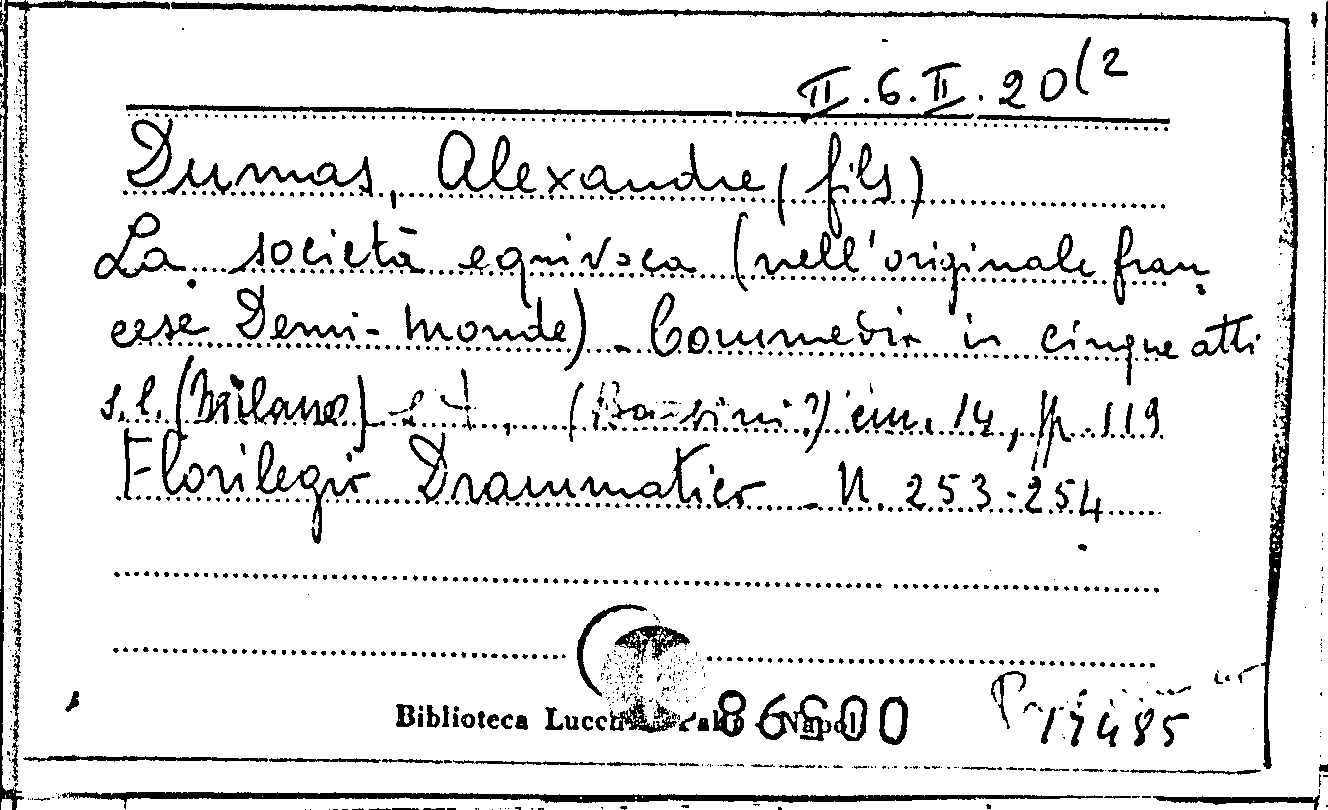 II.6.II.20(2
Dumas, Alexandre (fils)
La società equivoca (nell'originale fran-
cese Demi-Monde). Commedia in cinque atti
s.l. (Milano) (Barbini?) cm. 14, pp. 119
Florilegio Drammatico - N. 253-254
Biblioteca Napoli
86600